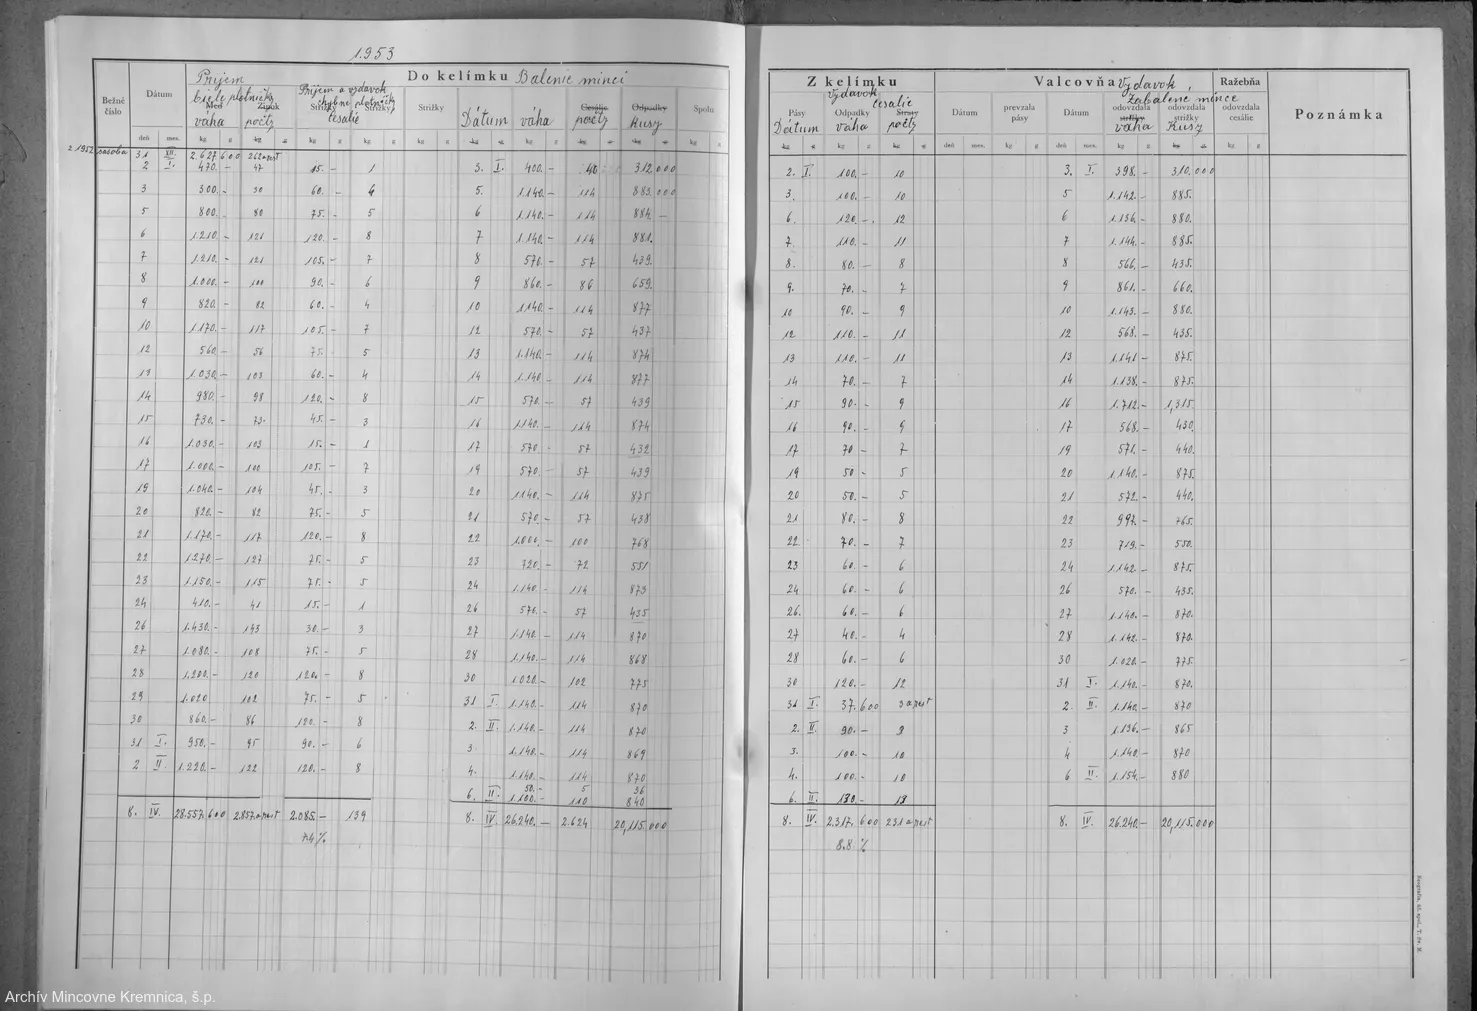 1953
Do kelímku Balenie mincí
Príjem
biele plotničky
Príjem a výdavok
chybné plotničky
cesalie
Bežné číslo
Dátum
Med
Zinok
Strižky
Strižky
Strižky
Cesálie
Odpadky
Spolu
váha
počty
Dátum
váha
počty
Kusy
deň mes. kg g kg g kg g kg g kg g kg g kg g kg g kg g
z 1952 zásoba 31 XII. 2.627 600 262 a rest
2 I. 470.- 47 15.- 1 3. I. 400.- 40 312000
3 300.- 30 60.- 4 5. 1.140.- 114 883.000
5 800.- 80 75.- 5 6 1.140.- 114 884 -
6 1.210.- 121 120.- 8 7 1.140.- 114 881.
7 1.210.- 121 105.- 7 8 570.- 57 439.
8 1.000.- 100 90.- 6 9 860.- 86 659.
9 820.- 82 60.- 4 10 1.140.- 114 877
10 1.170.- 117 105.- 7 12 570.- 57 437
12 560.- 56 75.- 5 13 1.140.- 114 874
13 1.030.- 103 60.- 4 14 1.140.- 114 877
14 980.- 98 120.- 8 15 570.- 57 439
15 730.- 73. 45.- 3 16 1.140.- 114 874
16 1.030.- 103 15.- 1 17 570. 57 432
17 1.000.- 100 105.- 7 19 570.- 57 439
19 1.040.- 104 45.- 3 20 1140.- 114 875
20 820.- 82 75.- 5 21 570.- 57 438
21 1.170.- 117 120.- 8 22 1.000.- 100 768
22 1.270.- 127 75.- 5 23 720.- 72 551
23 1.150.- 115 75.- 5 24 1.140.- 114 873
24 410.- 41 15.- 1 26 570.- 57 435
26 1.430.- 143 30.- 3 27 1.140.- 114 870
27 1.080.- 108 75.- 5 28 1.140.- 114 868
28 1.200.- 120 120.- 8 30 1.020.- 102 775
29 1.020 102 75.- 5 31 I. 1.140.- 114 870
30 860.- 86 120.- 8 2. II. 1.140.- 114 870
31 I. 950.- 95 90.- 6 3. 1.140.- 114 869
2 II. 1.220.- 122 120.- 8 4. 1.140.- 114 870
50.- 5 36
6. II. 1.100.- 110 840
8. IV. 28.557 600 2.857 a rest 2.085.- 139 8. IV. 26.240.- 2.624 20,115.000
7.4 %
Z kelímku
Výdavok
cesalie
Valcovňa Výdavok
Zabalené mince
Ražebňa
Poznámka
Pásy
Odpadky
Straty
Dátum
prevzala pásy
Dátum
odovzdala strižky
odovzdala strižky
odovzdala cesálie
Dátum
váha
počty
váha
Kusy
kg g kg g kg g deň mes. kg g deň mes. kg g kg g kg g
2. I. 100.- 10 3. I. 398.- 310.000
3. 100.- 10 5 1.142.- 885.
6. 120.-. 12 6 1.136.- 880.
7. 110.- 11 7 1.144.- 885.
8. 80.- 8 8 566.- 435.
9. 70.- 7 9 861.- 660.
10 90.- 9 10 1.143.- 880.
12 110.- 11 12 568.- 435.
13 110.- 11 13 1.141.- 875.
14 70.- 7 14 1.138.- 875.
15 90.- 9 16 1.712.- 1,315.
16 90.- 9 17 568.- 430.
17 70 - 7 19 571.- 440.
19 50 - 5 20 1.140.- 875.
20 50.- 5 21 572.- 440.
21 80.- 8 22 997.- 765.
22. 70.- 7 23 719.- 550.
23 60.- 6 24 1.142.- 875.
24 60.- 6 26 570.- 435.
26. 60.- 6 27 1.140.- 870.
27 40.- 4 28 1.142.- 870.
28 60.- 6 30 1.020.- 775.
30 120.- 12 31 I. 1.140.- 870.
31 I. 37.600 3 a rest 2. II. 1.140.- 870
2. II. 90.- 9 3 1.136.- 865
3. 100.- 10 4 1.140.- 870
4. 100.- 10 6 II. 1.154.- 880
6. II. 130.- 13
8. IV. 2.317. 600 231 a rest 8. IV. 26.240.- 20,115.000
8.8 %
Archív Mincovne Kremnica, š.p.